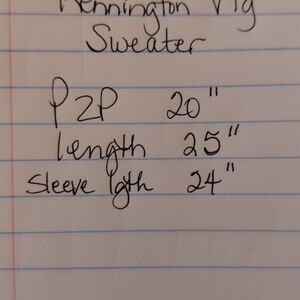 Pennington Vtg
Sweater
P2P 20"
length 25"
Sleeve lgth 24"